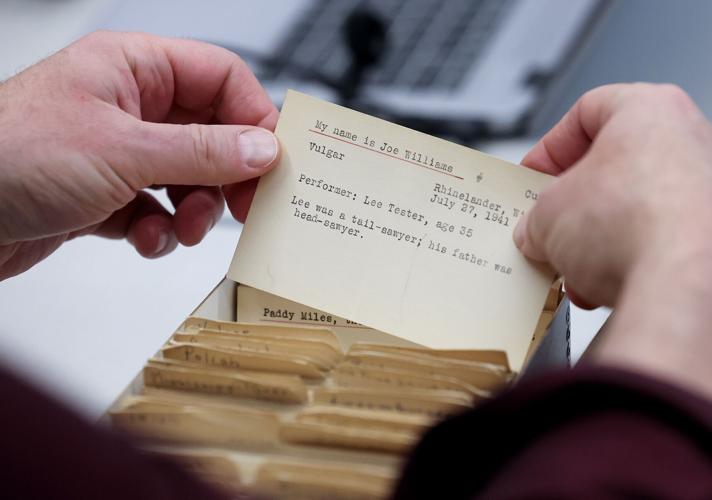 My name is Joe Williams # Cu
Vulgar
Rhinelander, Wi
July 27, 1941
Performer: Lee Tester, age 35
Lee was a tail-sawyer; his father was
head-sawyer.
Paddy Miles,
Polish